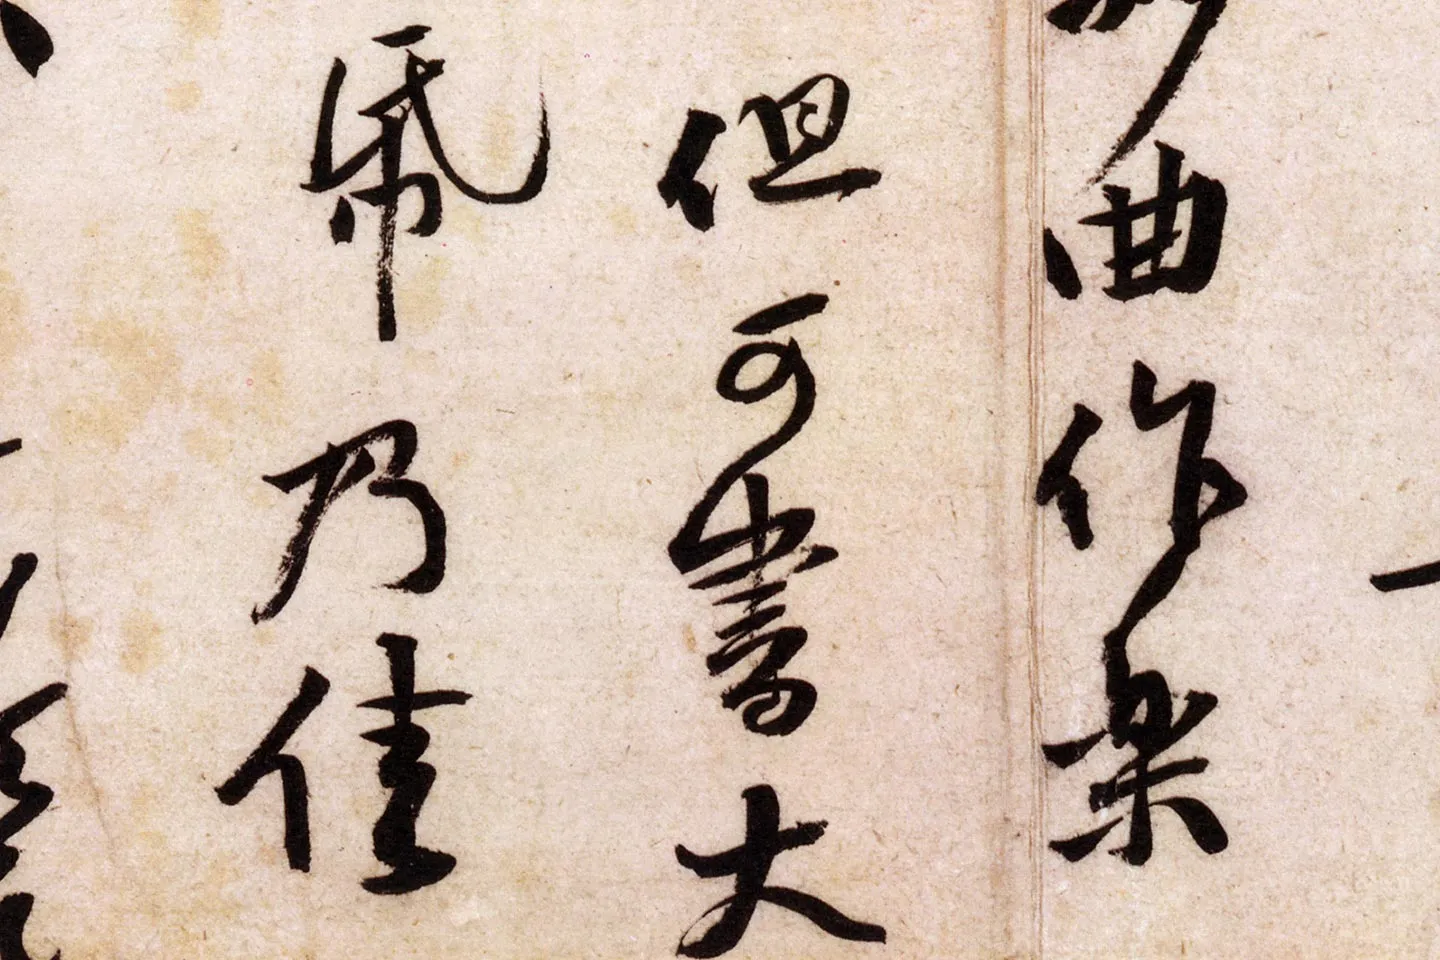 曲作楽
但可書大
帋乃佳